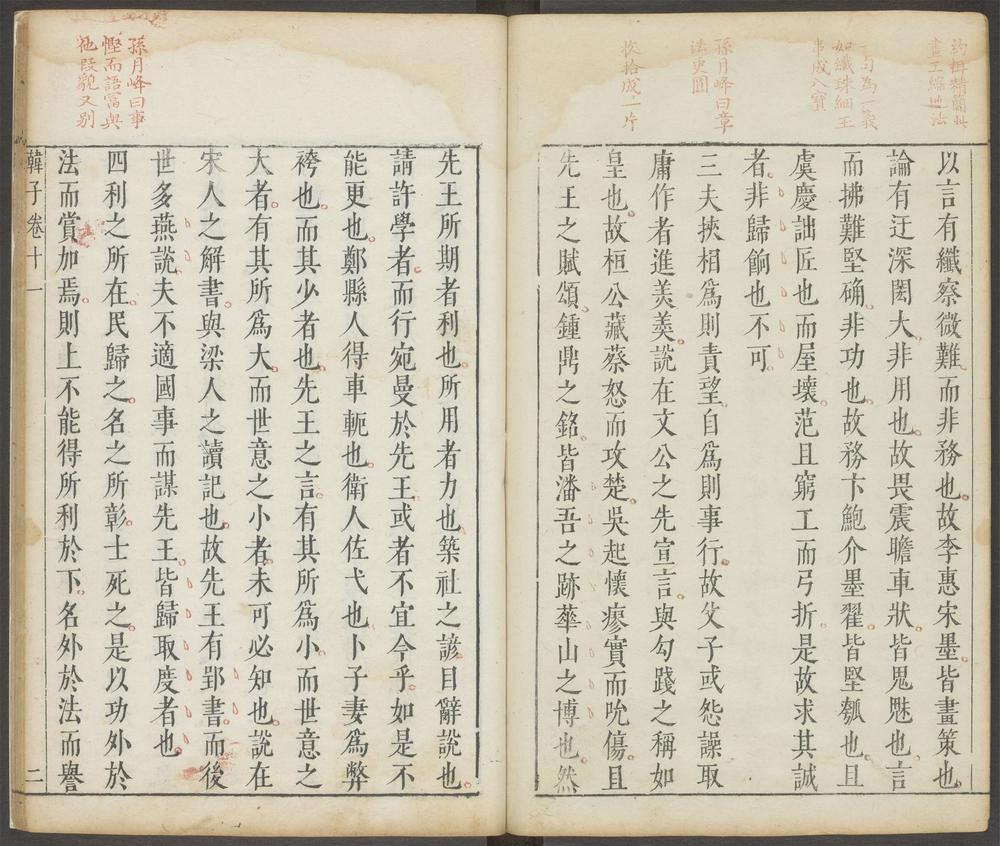 約揖精簡
畫工綜地法
一句為一義
如纖珠細玉
事成八寶
孫月峰曰章
法更圓
收拾成一片
以言有纖察微難而非務也故李惠宋墨皆畫策也
論有迂深閎大非用也故畏震瞻車狀皆鬼魅也言
而拂難堅确非功也故務卞鮑介墨翟皆堅瓠也且
虞慶詘匠也而屋壞范且窮工而弓折是故求其誠
者非歸餉也不可
三夫挾相爲則責望自爲則事行故父子或怨譟取
庸作者進美羹說在文公之先宣言與勾踐之稱如
皇也故桓公藏蔡怒而攻楚吳起懷瘳實而吮傷且
先王之賦頌鍾鼎之銘皆潘吾之跡華山之博也然
孫月峰曰事
慳而語冨與
他段貌又别
先王所期者利也所用者力也築社之諺目辭說也
請許學者而行宛曼於先王或者不宜今乎如是不
能更也鄭縣人得車軛也衛人佐弋也卜子妻爲弊
袴也而其少者也先王之言有其所爲小而世意之
大者有其所爲大而世意之小者未可必知也說在
宋人之解書與梁人之讀記也故先王有郢書而後
世多燕說夫不適國事而謀先王皆歸取度者也
四利之所在民歸之名之所彰士死之是以功外於
法而賞加焉則上不能得所利於下名外於法而譽
韓子卷十一
二